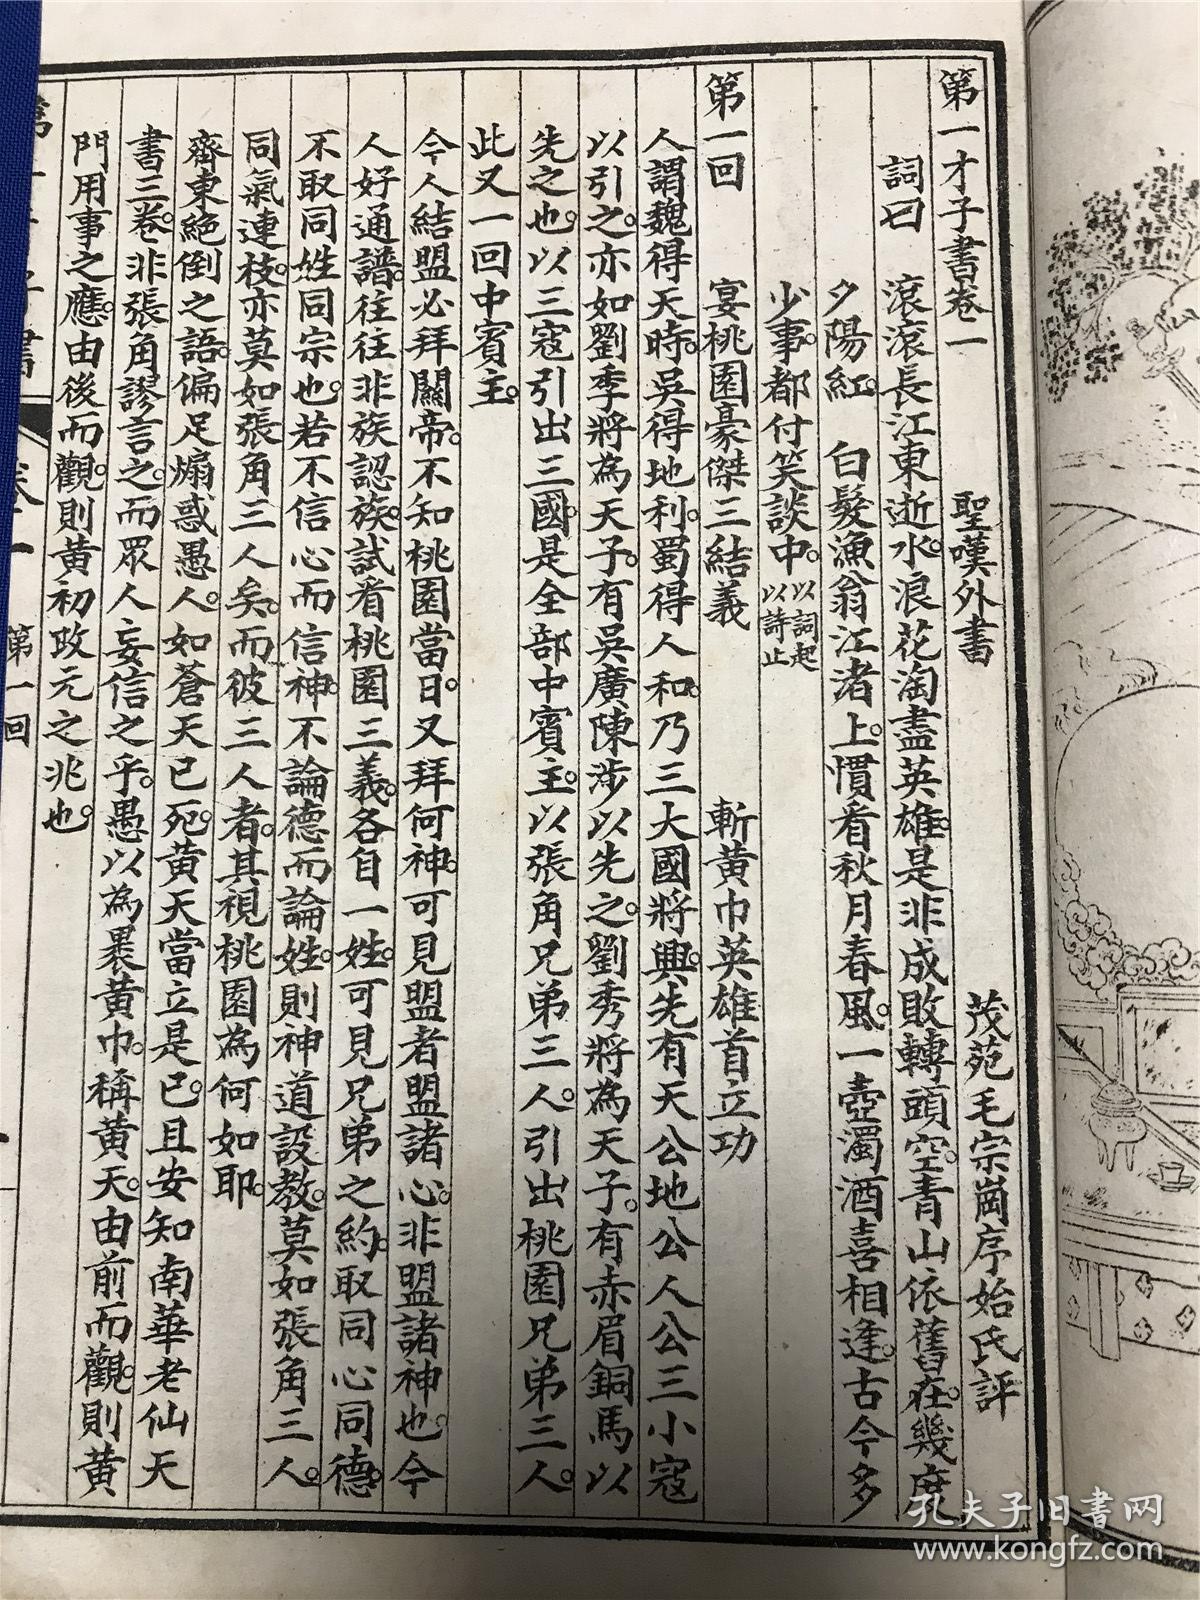 第一才子書卷一　聖嘆外書　茂苑毛宗崗序始氏評
詞曰　滾滾長江東逝水。浪花淘盡英雄。是非成敗轉頭空。青山依舊在。幾度
夕陽紅。　白髮漁翁江渚上。慣看秋月春風。一壺濁酒喜相逢。古今多
少事。都付笑談中。以詞起以詩止
第一回　宴桃園豪傑三結義　斬黃巾英雄首立功
人謂魏得天時。吳得地利。蜀得人和。乃三大國將興。先有天公地公人公三小寇
以引之。亦如劉季將為天子。有吳廣陳涉以先之。劉秀將為天子。有赤眉銅馬以
先之也。以三寇引出三國。是全部中賓主。以張角兄弟三人。引出桃園兄弟三人。
此又一回中賓主。
今人結盟必拜關帝。不知桃園當日。又拜何神。可見盟者盟諸心。非盟諸神也。今
人好通譜。往往非族認族。試看桃園三義。各自一姓。可見兄弟之約。取同心同德。
不取同姓同宗也。若不信心而信神。不論德而論姓。則神道設教。莫如張角三人。
同氣連枝。亦莫如張角三人矣。而彼三人者。其視桃園為何如耶。
齊東絕倒之語。偏足煽惑愚人。如蒼天已死。黃天當立是已。且安知南華老仙天
書三卷。非張角謬言之。而眾人妄信之乎。愚以為裹黃巾。稱黃天。由前而觀。則黃
門用事之應。由後而觀。則黃初改元之兆也。
第一才子書　卷一　第一回
孔夫子旧书网
www.kongfz.com